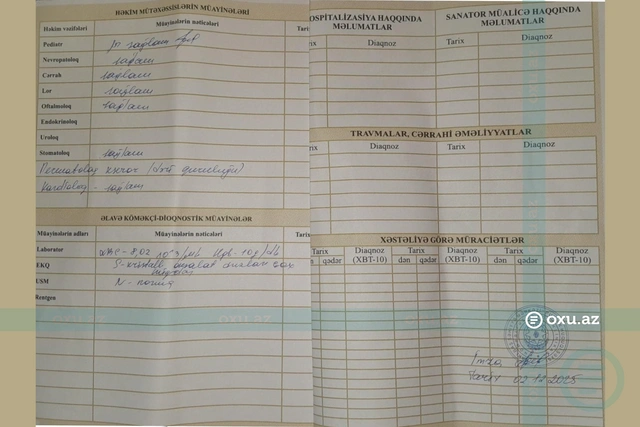 HƏKİM MÜTƏXƏSSİSLƏRİN MÜAYİNƏLƏRİ
Həkim vəzifələri
Müayinələrin nəticələri
Tari
Pediatr sağlam
Nevropatoloq sağlam
Cərrah sağlam
Lor sağlam
Oftalmoloq sağlam
Endokrinoloq
Uroloq
Stomatoloq sağlam
Dermatoloq
Kardioloq - sağlam
ƏLAVƏ KÖMƏKÇİ-DİOQNOSTİK MÜAYİNƏLƏR
Müayinələrin adları
Müayinələrin nəticələri
Tari
Laborator - 8,02
EKQ
USM N - norma
Rentgen
OSPITALİZASİYA HAQQINDA
MƏLUMATLAR
rix
Diaqnoz
SANATOR MÜALİCƏ HAQQINDA
MƏLUMATLAR
Tarix
Diaqnoz
TRAVMALAR, CƏRRAHİ ƏMƏLİYYATLAR
rix
Diaqnoz
Tarix
Diaqnoz
XƏSTƏLİYƏ GÖRƏ MÜRACİƏTLƏR
Tarix
Diaqnoz
(XBT-10)
Tarix
dən
qədər
Diaqnoz
(XBT-10)
Tarix
dən
qədər
Diaqnoz
(XBT-10)
oxu.az
İmza
Tarix